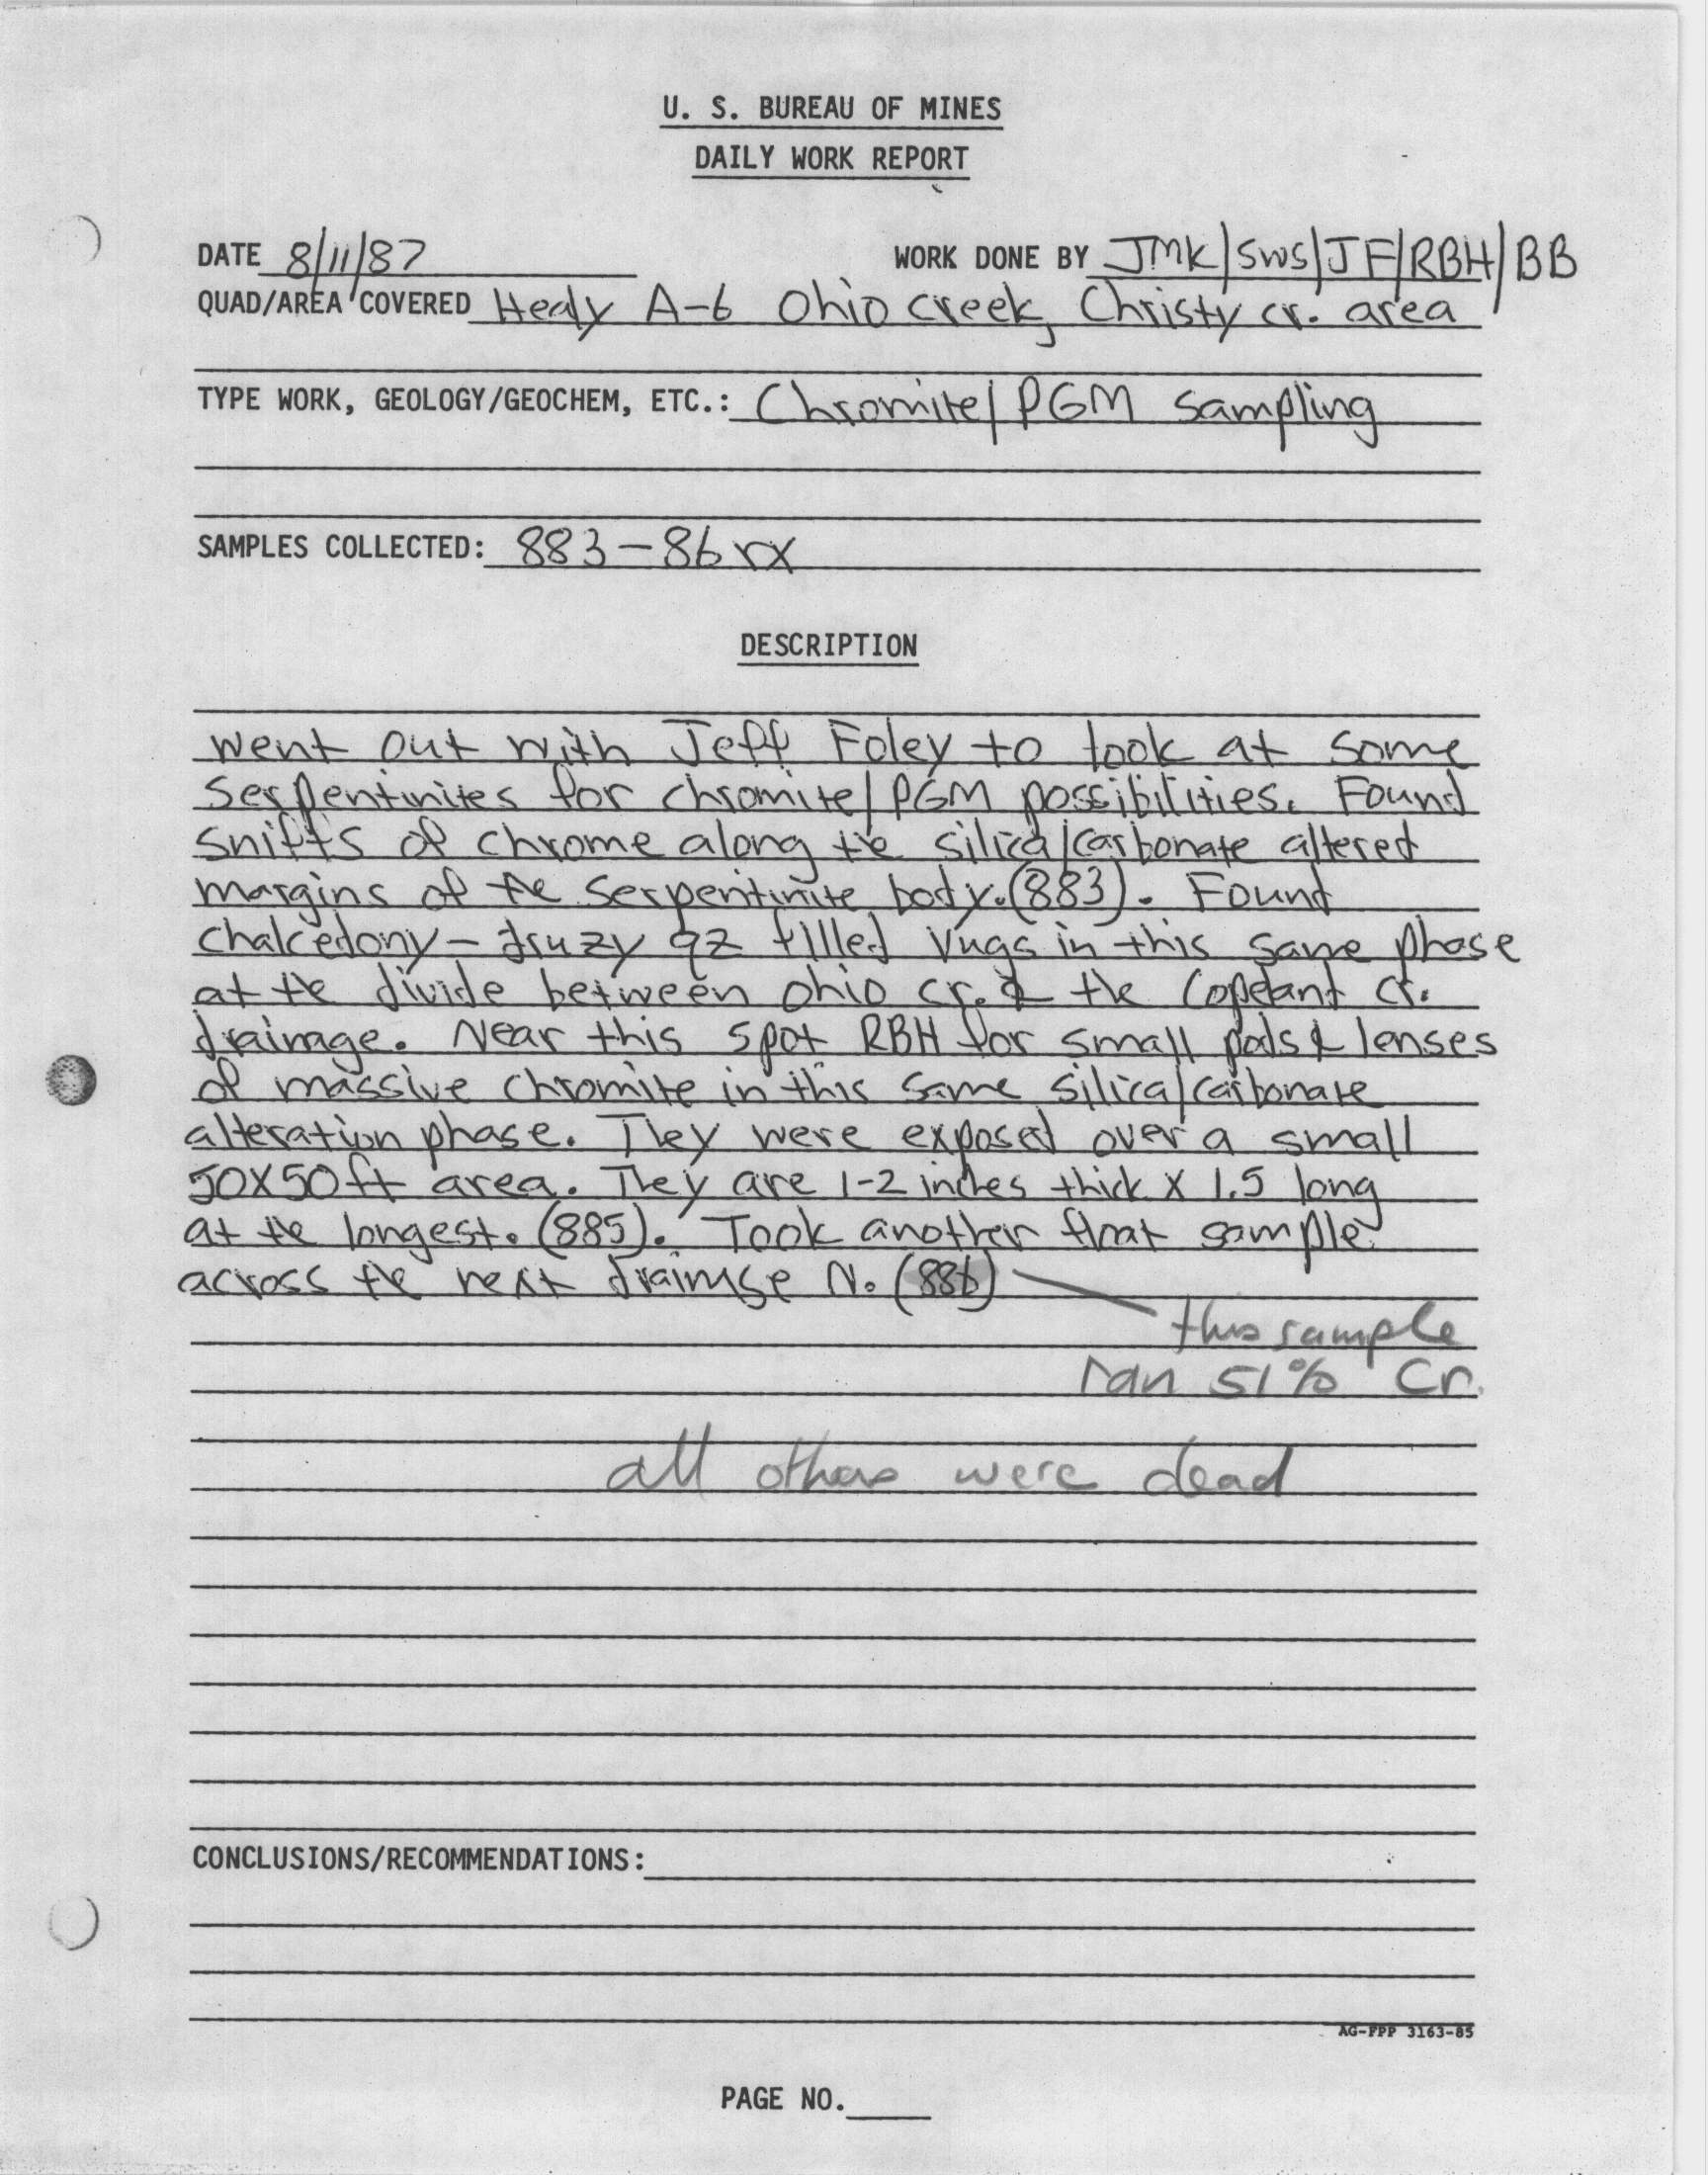 U. S. BUREAU OF MINES
DAILY WORK REPORT
DATE 8/11/87 WORK DONE BY JMK/SWS/JF/RBH/BB
QUAD/AREA COVERED Healy A-6 Ohio Creek, Christy cr. area
TYPE WORK, GEOLOGY/GEOCHEM, ETC.: Chromite/PGM Sampling
SAMPLES COLLECTED: 883-86 rx
DESCRIPTION
Went out with Jeff Foley to look at some
serpentinites for chromite/PGM possibilities. Found
sniffs of chrome along the silica/carbonate altered
margins of the serpentinite body. (883). Found
chalcedony - druzy qz filled vugs in this same phase
at the divide between Ohio cr. & the Copeland cr.
drainage. Near this spot RBH for small pods & lenses
of massive chromite in this same silica/carbonate
alteration phase. They were exposed over a small
50X50ft area. They are 1-2 inches thick X 1.5 long
at the longest. (885). Took another float sample
across the next drainage N. (886)
this sample
ran 51% Cr.
all others were dead
CONCLUSIONS/RECOMMENDATIONS:
AG-FPP 3163-85
PAGE NO.